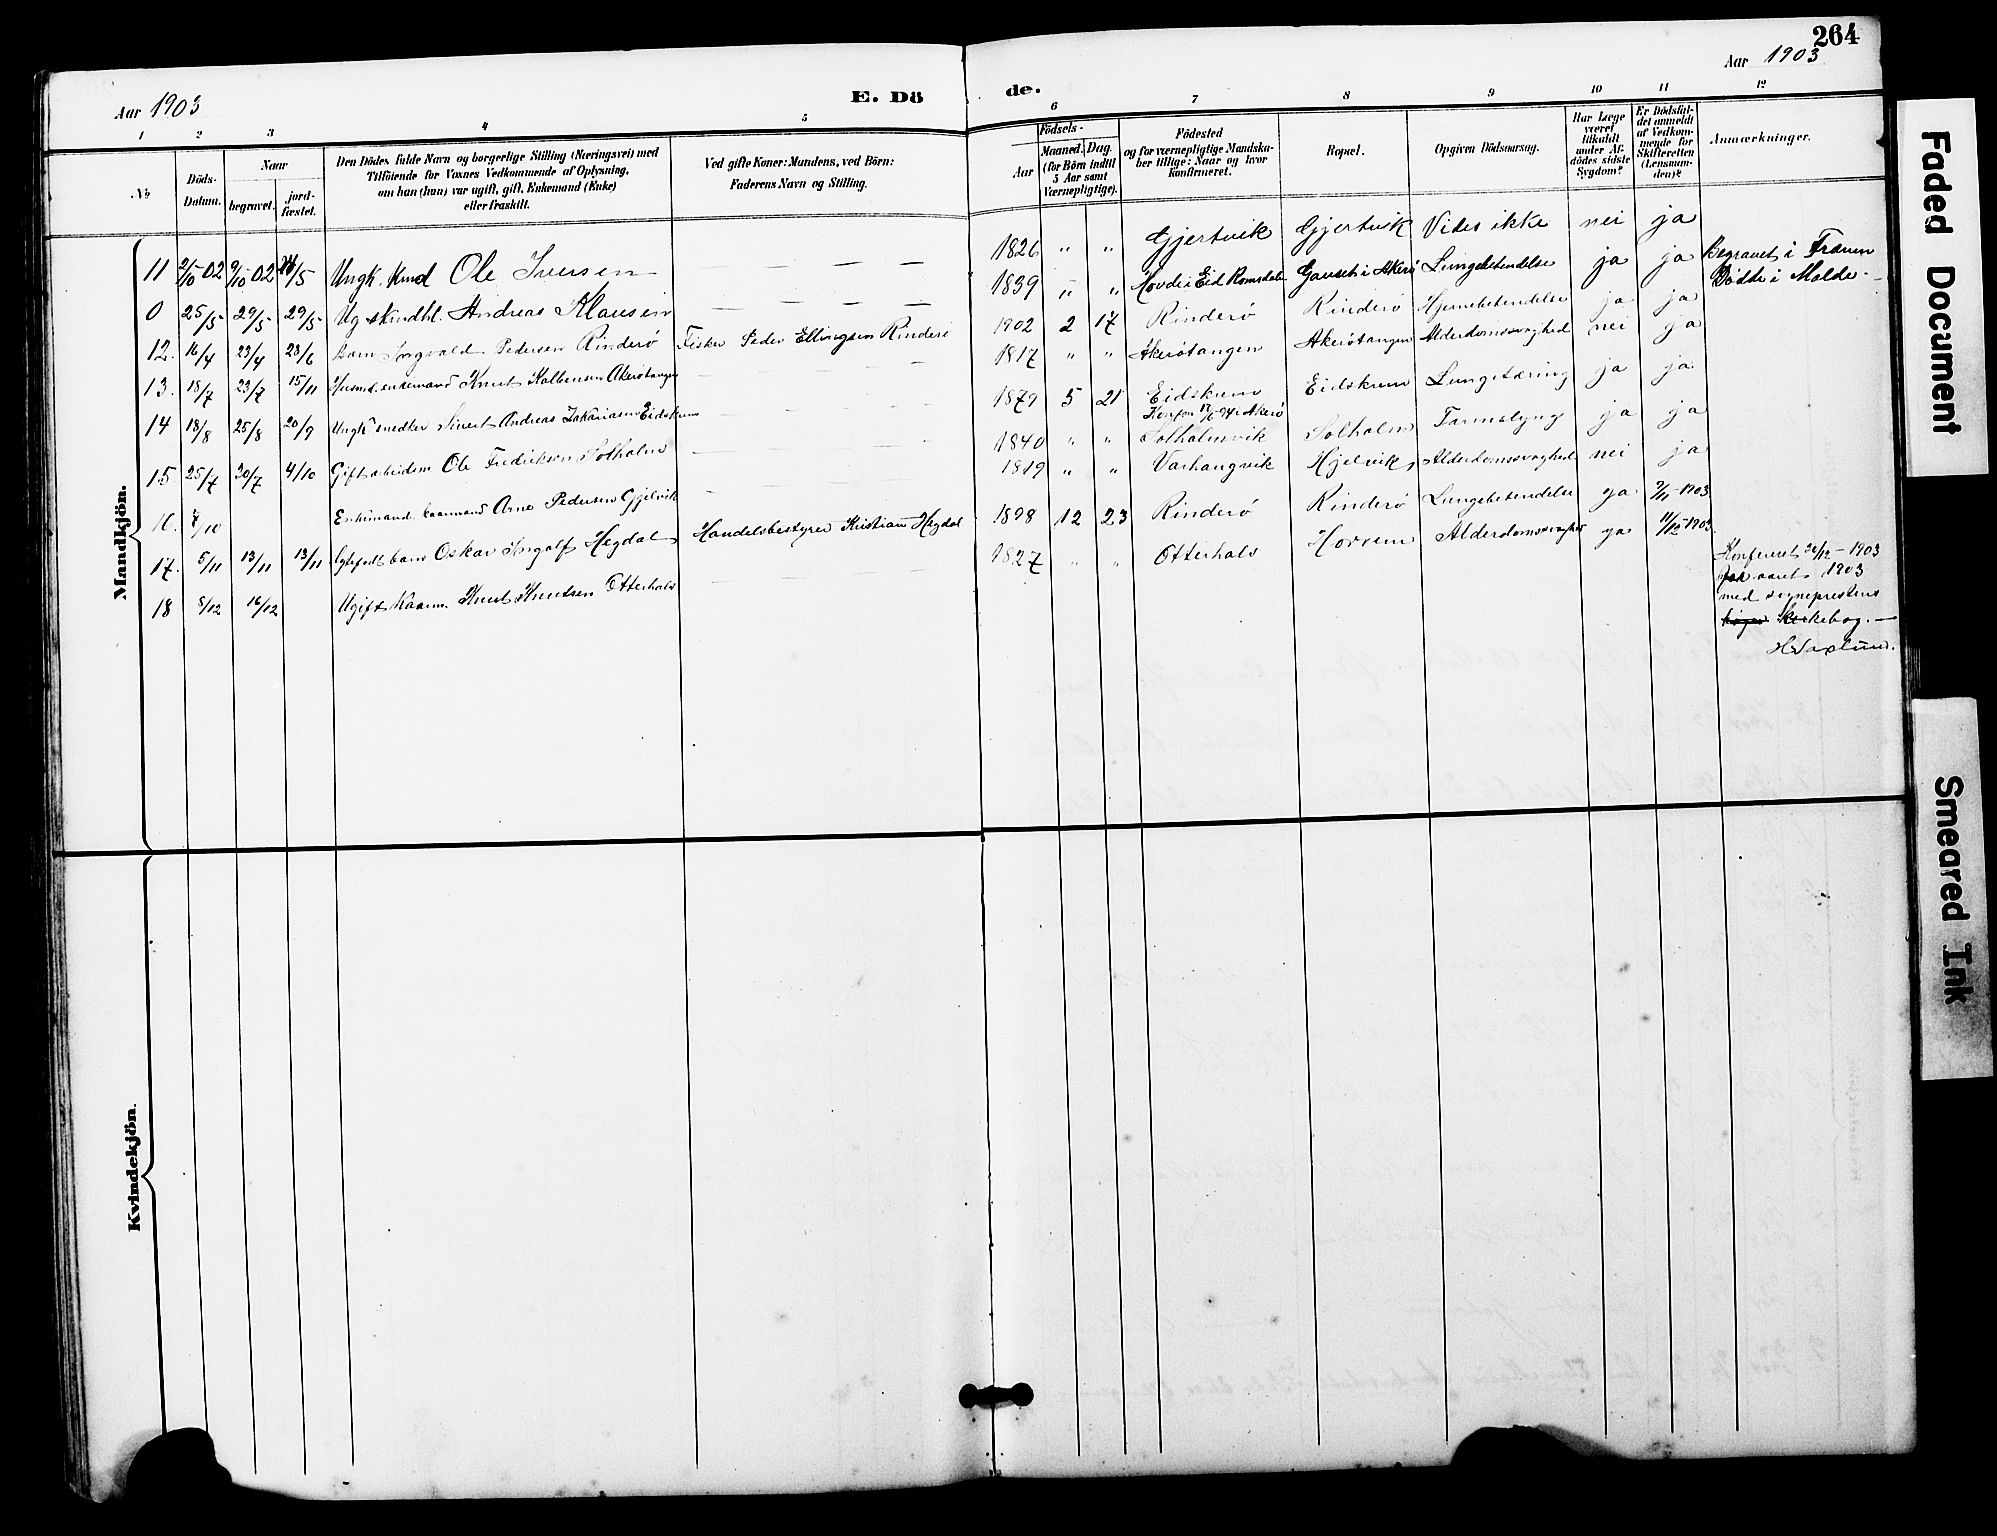 264
Aar 1903
E. Dö
de.
Aar 1903
1 2 3 4 5 6 7 8 9 10 11 12
No
Döds-
Datum.
Naar
begravet.
jord-
fæstet.
Den Dödes fulde Navn og borgerlige Stilling (Næringsvei) med
Tilföiende for Voxnes Vedkommende af Oplysning,
om han (hun) var ugift, gift, Enkemand (Enke)
eller fraskilt.
Ved gifte Koner: Mandens, ved Börn:
Faderens Navn og Stilling.
Födsels-
Aar
Maaned. Dag.
(for Börn indtil
5 Aar samt
Værnepligtige).
Födested
og for værnepligtige Mandska-
ber tillige: Naar og hvor
konfirmeret.
Bopæl.
Opgiven Dödsaarsag.
Har Læge
været
tilkaldt
under Af-
dödes sidste
Sygdom?
Er Dödsfal-
det anmeldt
af Vedkom-
mende for
Skifteretten
(Lensman-
den)?
Anmærkninger.
Mandkjön.
11 2/10 02 9/10 02 /5 Ungk. Ole Iversen 1826 " " Gjertvik Gjertvik Vides ikke nei ja
0 25/5 29/5 29/5 Ug skindhl. Andreas Klausen 1839 " " Hovde i Eid Romsdalen Gauset i Akerø Lungebetendelse ja ja Begravet i Frænen
Dødde i Molde.
12. 16/4 23/4 28/6 Barn Ingvald Pedersen Rinderø Fisker Peder Ellingsen Rinderø 1902 2 17 Rinderø Rinderø Hjernebetendelse ja ja
13. 18/7 23/7 15/11 Husmd. enkemand Knut Kolbensen Akerøtangen 1817 " " Akerøtangen Akerøtangen Alderdomssvaghed nei ja
14 18/8 25/8 20/9 Ungk. smedker Sivert Andreas Zakariasen Eidskrem 1879 5 21 Eidskrem Eidskrem Lungetæring ja ja
Konfm 17/6-94 i Akerø
15. 25/7 30/7 4/10 Gift arbeidsm Ole Fredriksen Solholm 1840 " " Solholmvik Solholm Tarmslyng ja ja
16. /10 Enkemand kaarmand Arne Pedersen Gjelvik 1819 " " Varhaugvik Hjelvik Alderdomssvaghed nei ja
17. 5/11 13/11 13/11 Egtefødt barn Oskar Ingolf Hegdal Handelsbestyrer Kristian Hegdal 1898 12 23 Rinderø Rinderø Lungebetendelse ja 7/11-1903
18 8/12 16/12 Ugift Kaarm. Knut Knutsen Otterhals 1827 " " Otterhals Horrem Alderdomssvaghet ja 11/12-1903
Konfereret 30/12-1903
for aaret 1903
med sogneprestens
bøger Kirkebog. —
Kvindekjön.
Faded Document
Smeared Ink